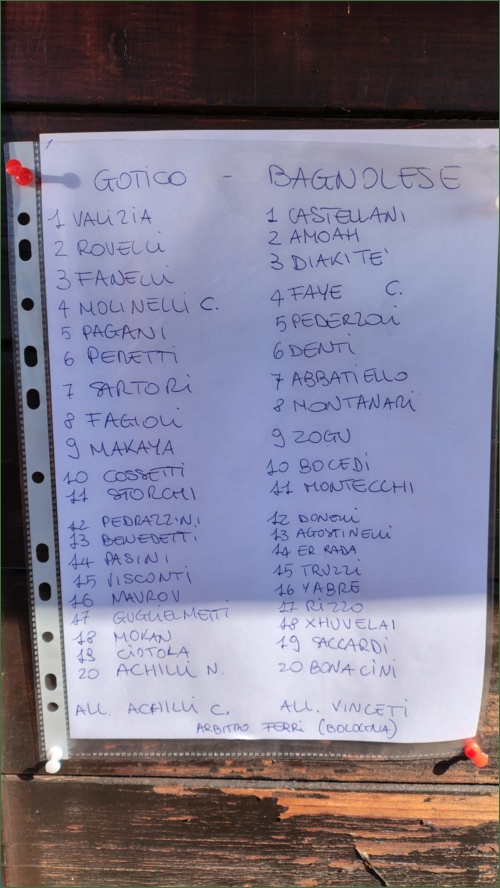 GOTICO - BAGNOLESE
1 VALIZIA
2 ROVELLI
3 FANELLI
4 MOLINELLI C.
5 PAGANI
6 PERETTI
7 SARTORI
8 FAGIOLI
9 MAKAYA
10 COSSETTI
11 STORCHI
12 PEDRAZZINI
13 BENEDETTI
14 PASINI
15 VISCONTI
16 MAVROV
17 GUGLIELMETTI
18 MOKAN
19 CIOTOLA
20 ACHILLI N.
ALL. ACHILLI C.
1 CASTELLANI
2 AMOAH
3 DIAKITE'
4 FAYE C.
5 PEDERZOLI
6 DENTI
7 ABBATIELLO
8 MONTANARI
9 ZOGU
10 BOCEDI
11 MONTECCHI
12 DONELLI
13 AGOSTINELLI
14 ER RADA
15 TRUZZI
16 YABRE
17 RIZZO
18 XHUVELAI
19 SACCARDI
20 BONACINI
ALL. VINCETI
ARBITRO FERRI (BOLOGNA)